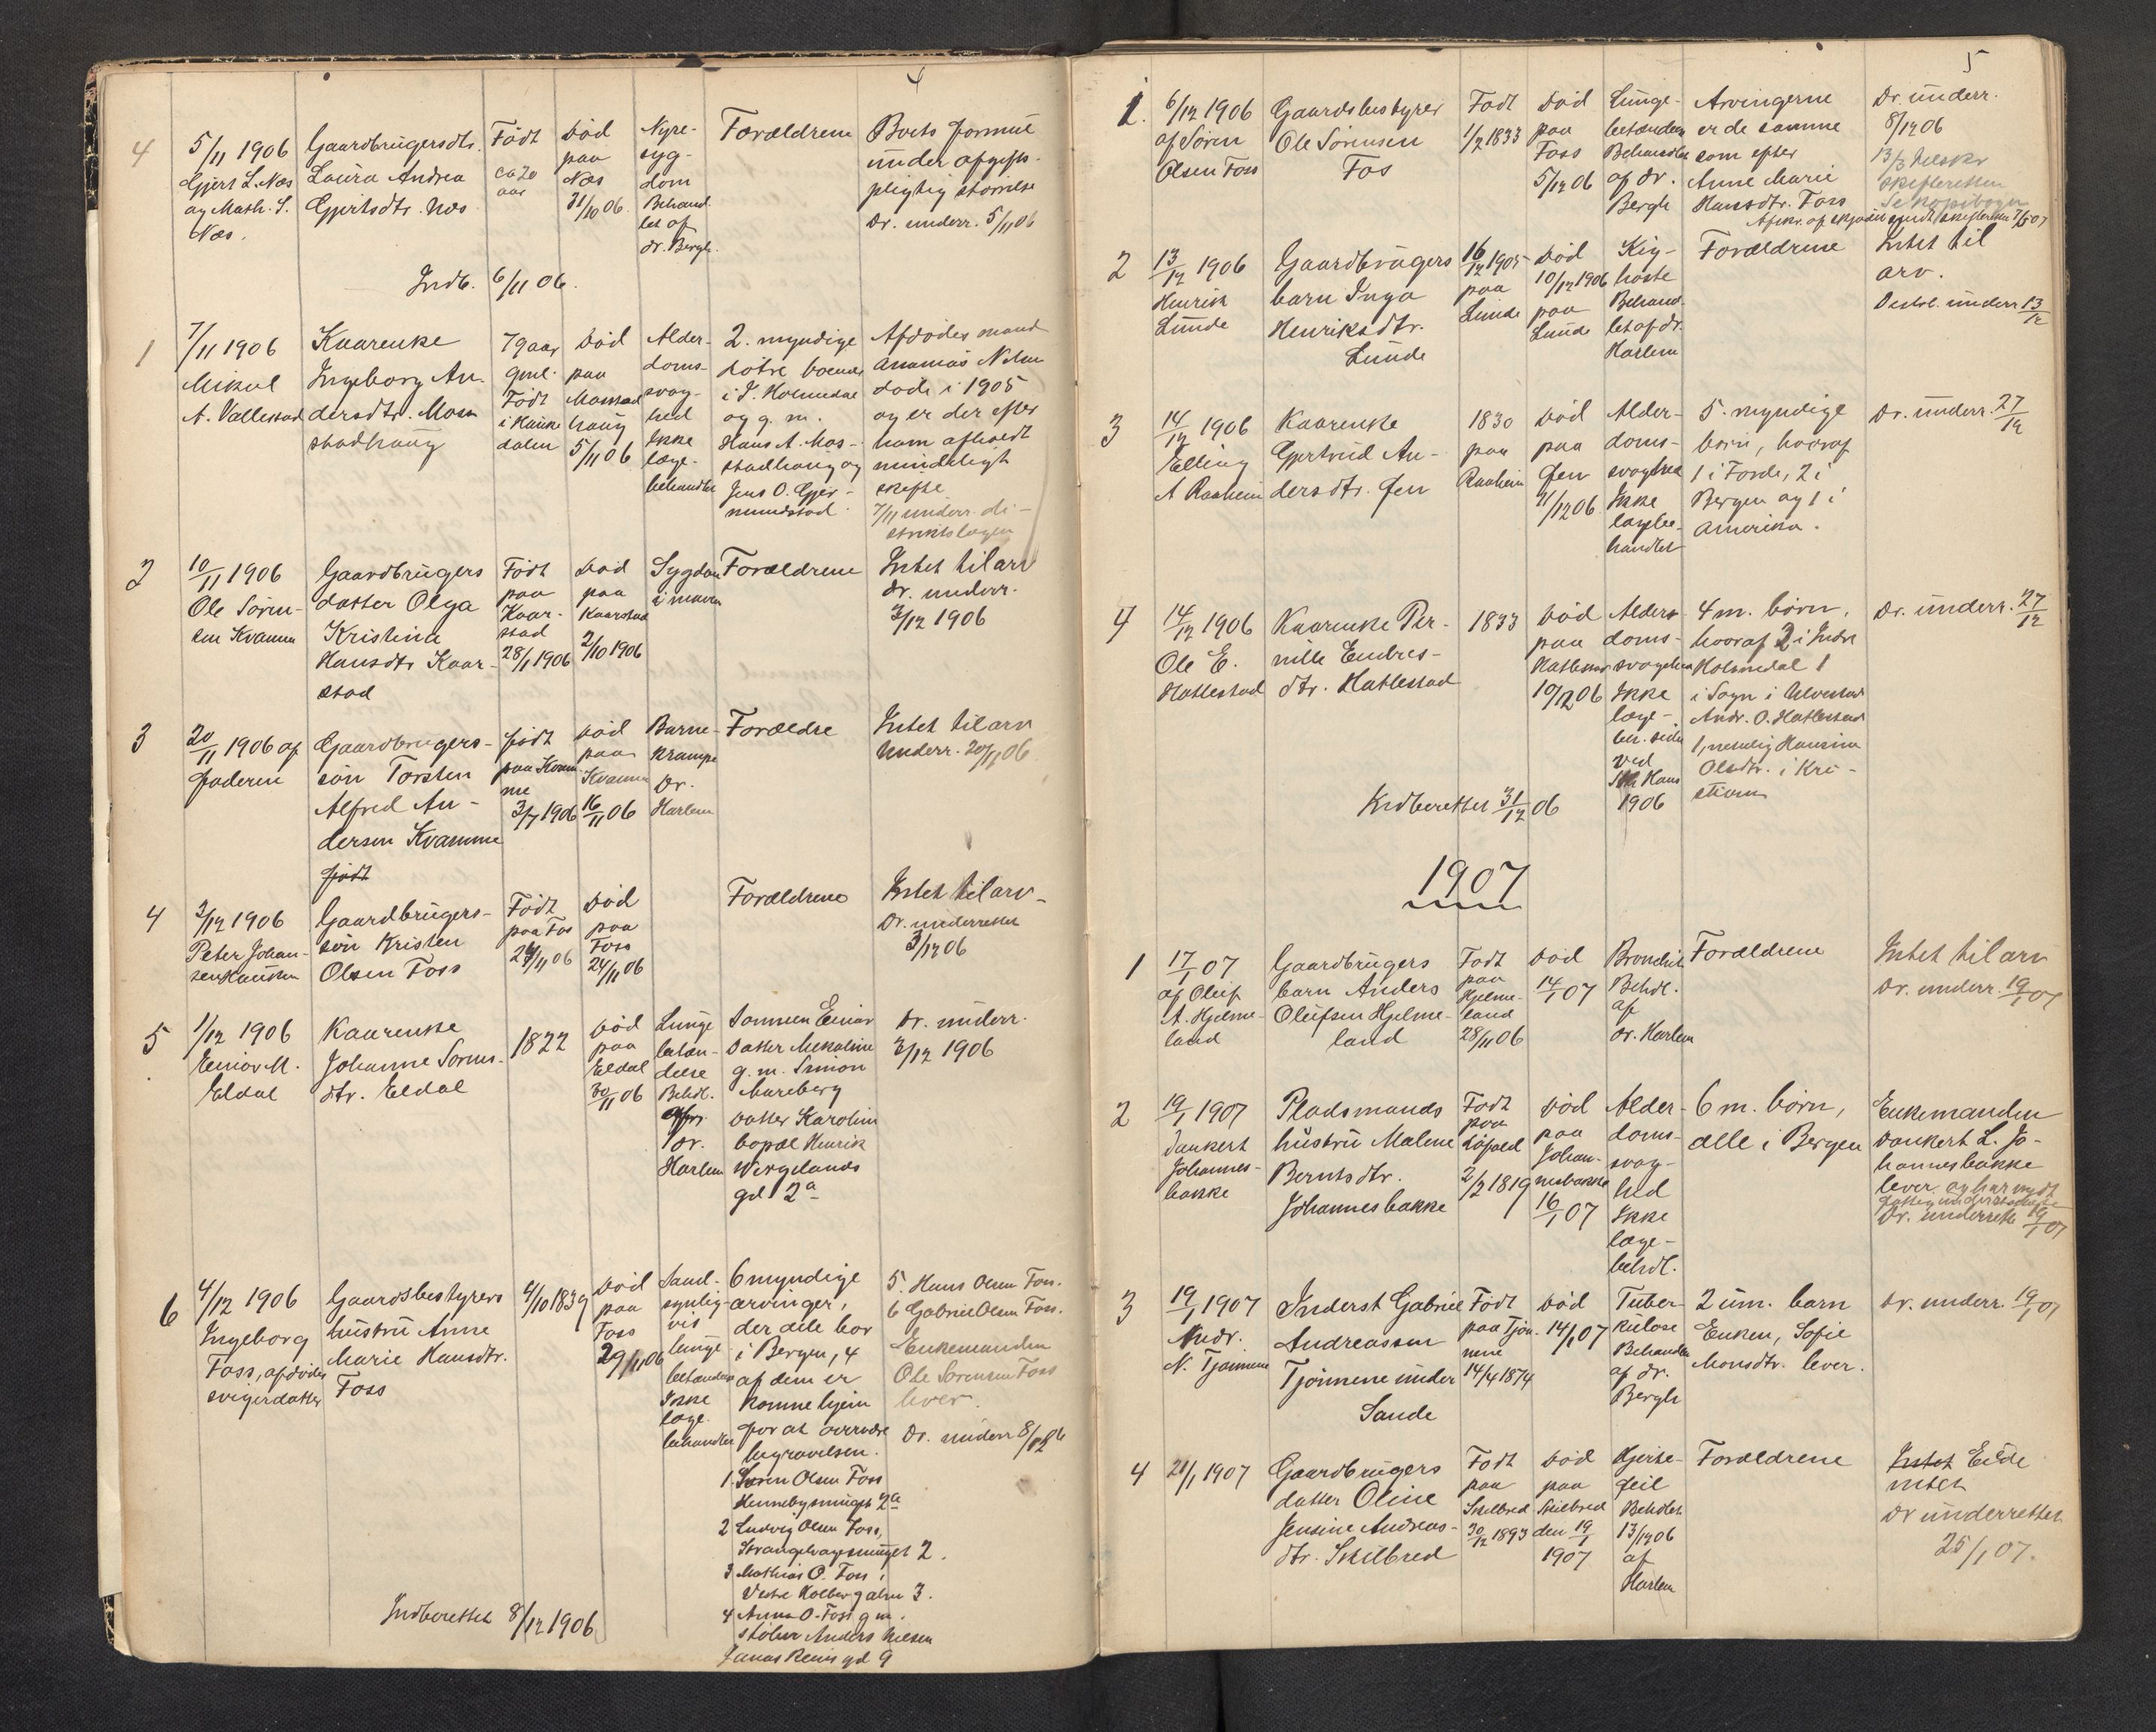 4
4
5/11 1906
Gjert L. Næs
og Math. S.
Næs.
Gaardbrugersdtr.
Laura Andrea
Gjertsdtr. Næs
Født
ca 20
aar
Død
paa
Næs
31/10 06.
Nyre-
syg-
dom
Behand-
let af
dr. Bergh.
Forældrene
Boets formue
under afgifts-
pligtig størrelse
Dr. underr. 5/11 06
Indb. 6/11 06.
1
7/11 1906
Mikal
A. Vallestad
Kaarenke
Ingeborg An-
dersdtr. Mosa
stadhaug
79 aar
gml.
Født
i Hauke
dalen
Død
paa
Mosstad
haug
5/11 06
Alder-
doms-
svag-
hed
Ikke
læge-
behandlet
2. myndige
døtre boende
i I. Holmedal
og g. m.
Hans A. Mos-
stadhaug og
Jens O. Gjer-
mundstad.
Afdødes mand
Ananias Nilsen
døde i 1905
og er der efter
ham afholdt
mindeligt
skifte
7/11 underr. di-
striktslægen
2
10/11 1906
Ole Søren-
sen Kvamme
Gaardbrugers
datter Olga
Kristina
Hansdtr Kaar-
stad
Født
paa
Kaar-
stad
28/1 1906
Død
paa
Kaarstad
2/10 1906
Sygdom
i maven
Forældrene
Intet til arv
Dr. underr.
3/12 1906
3
20/11 1906 af
faderen
Gaardbrugers-
søn Torsten
Alfred An-
dersen Kvamme
født
født
paa Kvam-
me
3/7 1906
Død
paa
Kvamme
16/11 06
Barne-
krampe
Dr.
Harlem
Forældre
Intet til arv
Underr. 20/11 06.
4
3/12 1906
Peter Johan-
sen
Gaardbrugers-
søn Kristen
Olsen Foss
Født
paa Fos
24/11 06
Død
paa
Foss
24/11 06
Forældrene
Intet til arv-
Dr. underrettet
3/12 06
5
1/12 1906
Einar M.
Eldal
Kaarenke
Johanne Sørens-
dtr. Eldal
1822
Død
paa
Eldal
30/11 06
Lunge
betæn-
delse
Behdl.
af
dr.
Harlem
Sønnen Einar
Datter Mekaline
g. m. Simon
Mareberg
Datter Karolin
bopæl Henrik
Wergelands
gd 2a
Dr. underr.
3/12 1906
6
4/12 1906
Ingeborg
Foss, afdødes
svigerdatter
Gaardsbestyrers
hustru Anne
Marie Hansdtr.
Foss
4/10 1839
Død
paa
Foss
29/11 06
Sand-
synlig-
vis
lunge
betændelse
Ikke
læge
behandlet
6 myndige
arvinger,
der dele bor
i Bergen, 4
af dem er
komne hjem
for at overvære
begravelsen.
1. Søren Olsen Foss
Hennebysmuget 2a
2 Ludvig Olsen Foss,
Strangehagesmuget 2.
3 Mathias O. Foss,
Vestre Holbergalm 3.
4 Anna O. Foss g m.
støber Anders Nielsen
Jonas Reins gd 9
5. Hans Olsen Foss.
6 Gabriel Olsen Foss.
Enkemanden
Ole Sørensen Foss
lever.
Dr. underr 8/12 06
Indberettet 8/12 1906
5
1.
6/12 1906
af Søren
Olsen Foss
Gaardsbestyrer
Ole Sørensen
Fos
Født
1/2 1833
Død
paa
Foss
5/12 06
Lunge-
betændelse
Behandlet
af dr.
Bergh
Arvingerne
er de samme
som efter
Anne Marie
Hansdtr. Foss
Dr. underr.
8/12 06
skifteretten
Se kopibogen
2
13/12 1906
Henrik
Lunde
Gaardbrugers
barn Inga
Henriksdtr.
Lunde
16/12 1905
paa
Lunde
Død
10/12 1906
paa
Lunde
Kig-
hoste
Behand-
let af dr.
Harlem
Forældrene
Intet til
arv.
Distrl. underr 13/12
3
14/12 1906
Elling
A Raaheim
Kaarenke
Gjertrud An-
dersdtr. Gjen
1830
paa
Raaheim
Død
paa
Gjen
11/12 06.
Alder-
doms-
svaghed
Ikke
lægebe-
handlet
5. myndige
børn, hvoraf
1 i Førde, 2 i
Bergen og 1 i
Amerika.
Dr. underr. 27/12
4
14/12 1906
Ole E.
Hatlestad
Kaarenke Per-
nille Endres-
dtr. Hatlestad
1833
Død
paa
Hatlestad
10/12 06
Alders-
doms-
svaghed
Ikke
læge-
beh. siden
ved
St. Hans
1906
4 m. børn,
hvoraf 2 i Indre
Holmedal 1
i Sogn i Ulvestad
Andr. O. Hatlestad
1, nemlig Hansine
Olsdtr. i Kri-
stiania
Dr. underr. 27/12
Indberettet 31/12 06
1907
1
17/1 07
af Oluf
A. Hjelme-
land
Gaardbrugers
barn Anders
Olufsen Hjelme-
land
Født
paa
Hjelme-
land
28/11 06
Død
14/1 07
Bronchit
Behdl.
af
dr. Harlem
Forældrene
Intet til arv
Dr. underr. 19/1 07
2
19/1 1907
Dankert
Johannes-
bakke
Pladsmands
hustru Malene
Berntsdtr.
Johannesbakke
Født
paa
2/2 1819
Død
paa
Johan-
nesbakke
16/1 07
Alder-
doms-
svag-
hed
Ikke
læge-
behdl.
6 m. børn,
alle i Bergen
Enkemanden
Dankert L. Jo-
hannesbakke
lever og har nydt
fattigunderstøttelse
Dr. underrettet 19/1 07
3
19/1 1907
Andr.
N. Tjønnene
Inderst Gabriel
Andreassen
Tjønnene under
Sande
Født
paa Tjøn-
nene
14/4 1874
Død
14/1 07
Tuber-
kulose
Behandlet
af dr.
Bergh
2 um. barn
Enken, Sofie
Monsdtr. lever.
Dr. underr. 19/1 07
4
21/1 1907
Gaardbrugers
datter Oline
Jensine Andreas-
dtr. Skilbred
Født
paa
Skilbred
30/12 1893
Død
paa
Skilbred
den 19/1
1907
Hjerte-
feil
Behdlet
13/12 06
af
Harlem
Forældrene
Intet Eide
intet
Dr underrettet
25/1 07.